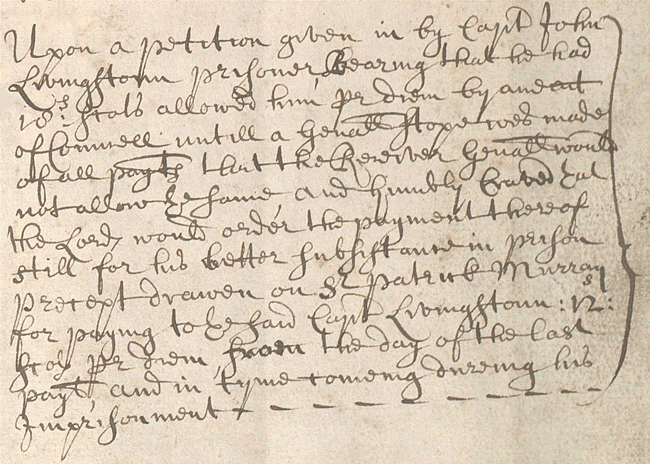 Upon a petition given in by Capt John
Livingstoun prisoner, Bearing that he had
18s: Scots allowed him pr diem by ane act
of Counsell untill a generall stope wes made
of all payts that the Receiver generall would
not allow ye same, and humbly Craved yat
the Lords would order the payment thereof
still for his better subsistance in prison
precept drawen on Sr Patrick Murray
for paying to ye said Capt Livingstoun : 12s:
Scots pr diem from the day of the last
payt, and in tyme comeing dureing his
Imprisonment